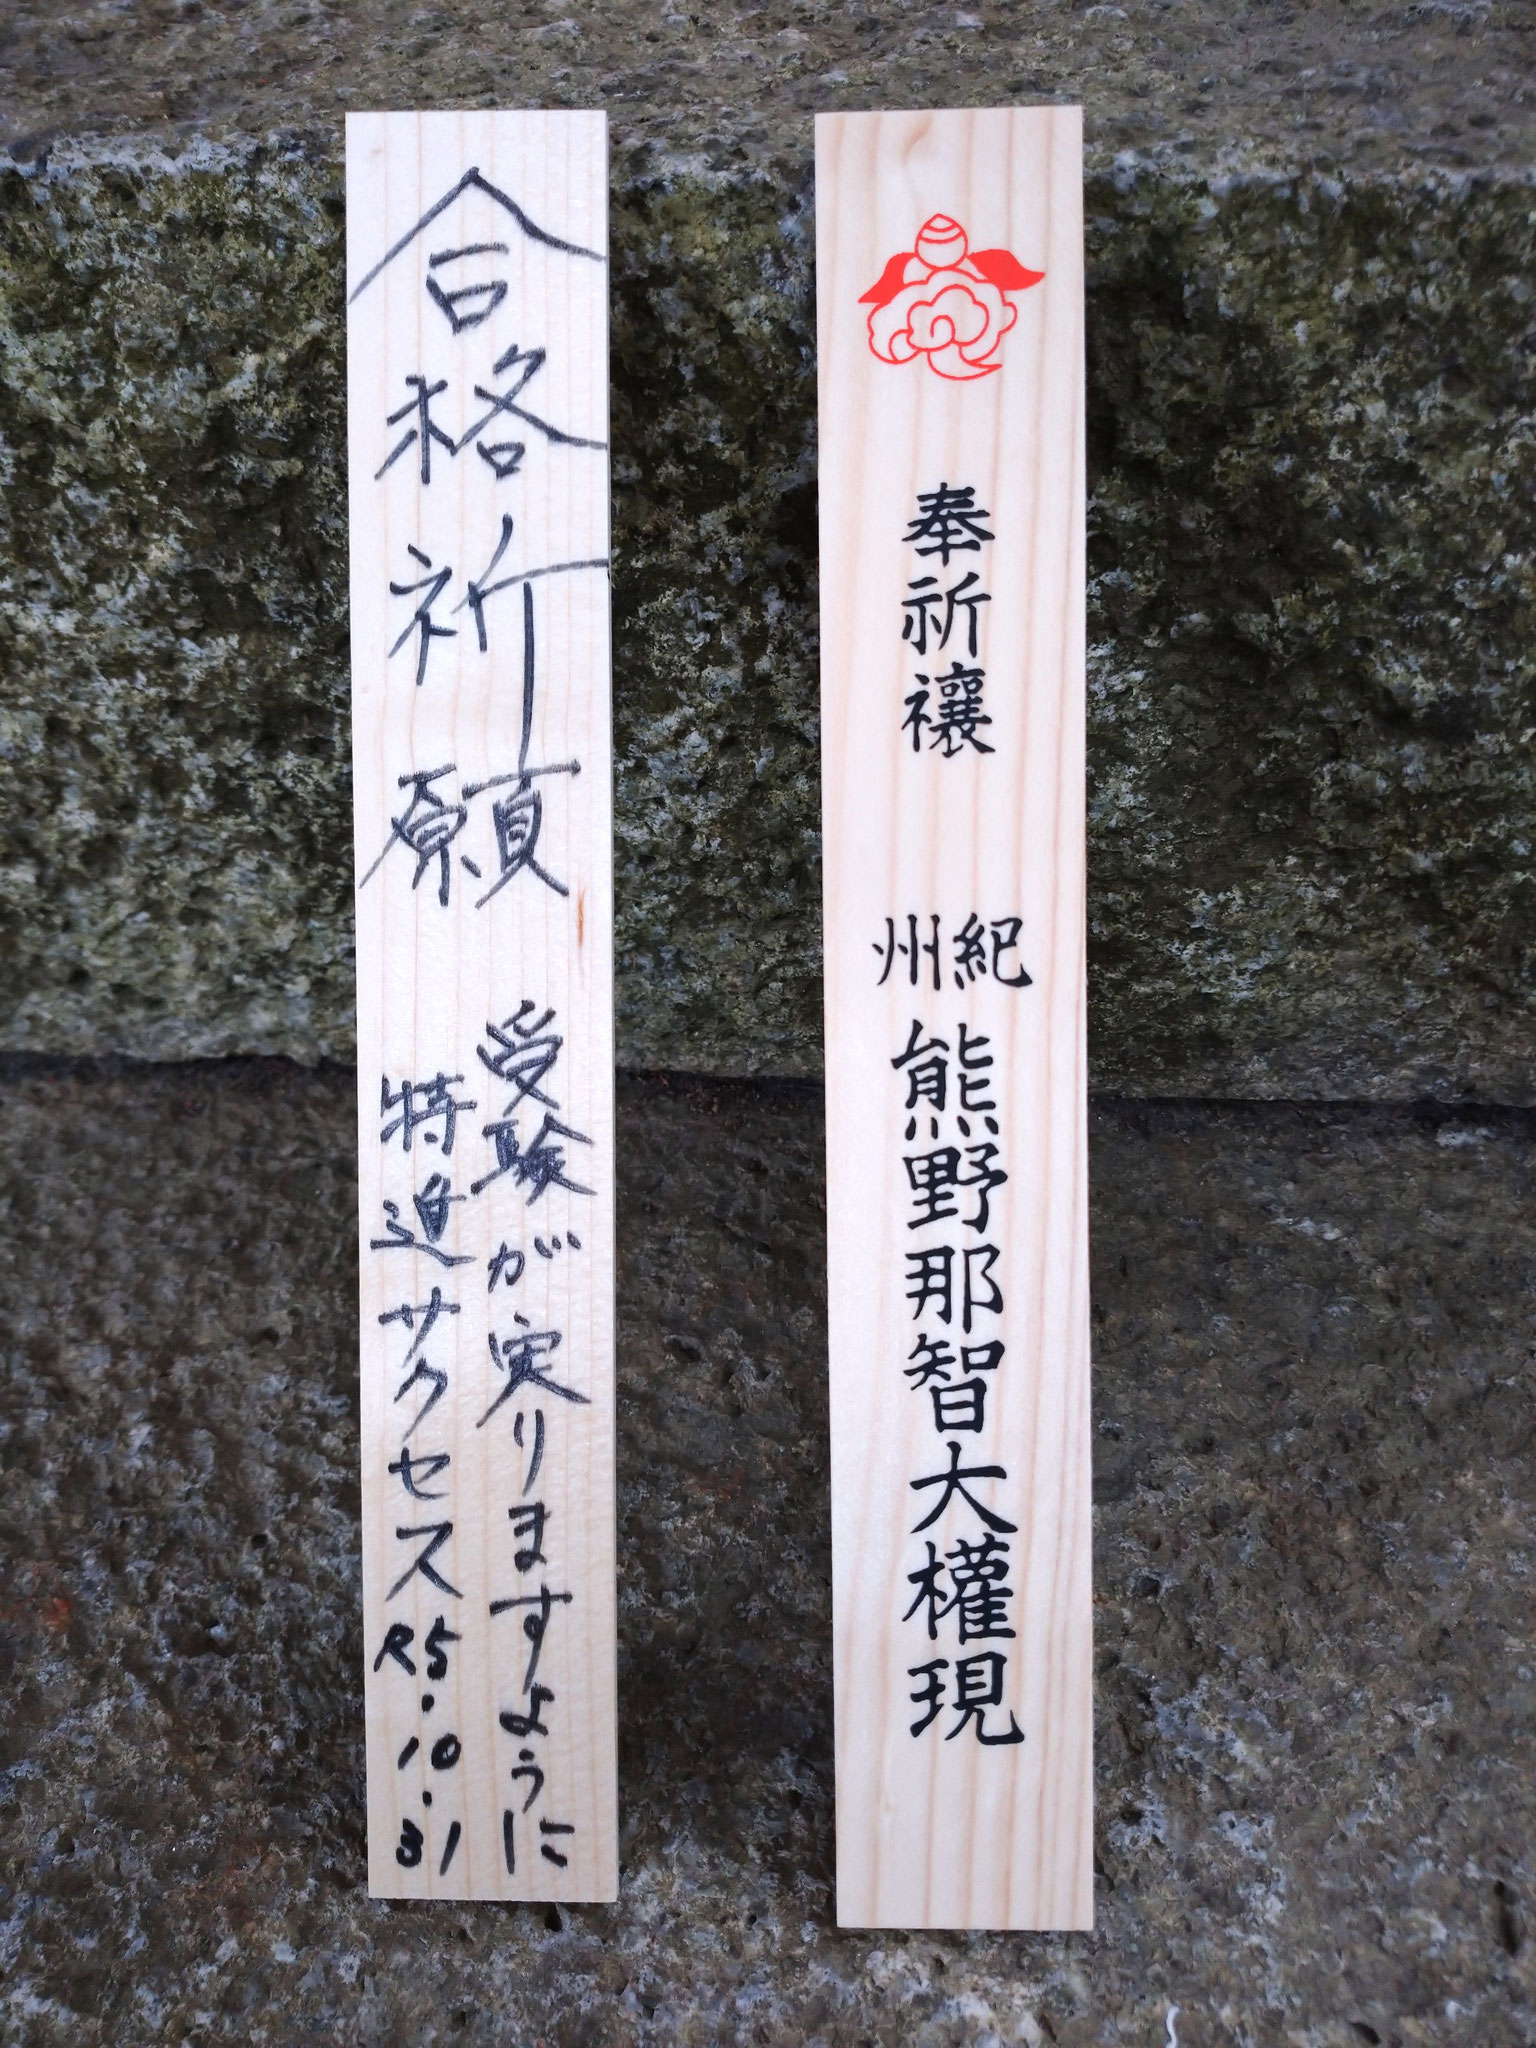 合格祈願
受験が実りますように
特進サクセス
R5.10.31
奉祈禳
紀州
熊野那智大權現